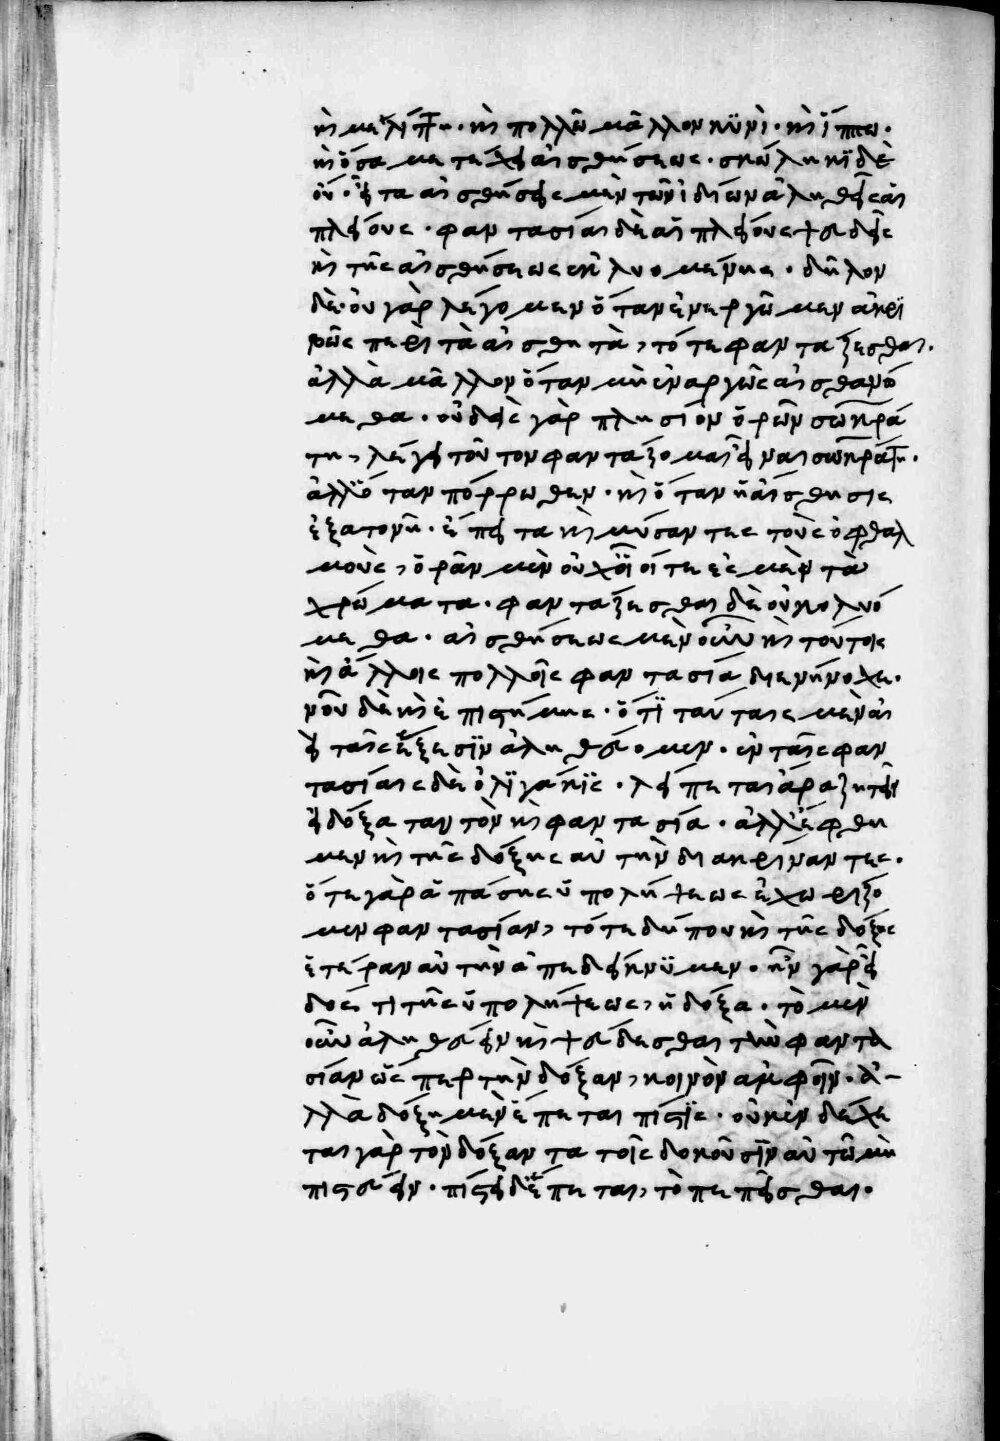 καὶ μελίττῃ. καὶ πολλῶ μᾶλλον κϋνὶ. καὶ ἵππω.
καὶ ὅσα μετέχει αἰσθήσεως. σκώληκϊ δὲ
οὔ. εἶτα αἰσθήσεις μὲν τῶν ἰδίων ἀληθεῖς αἱ
πλείους. φαντασίαι δὲ αἱ πλείους ψευδεῖς
καὶ τῆς αἰσθήσεως ἐκλυομένης. δῆλον
δὲ. οὐ γὰρ λέγομεν ὅταν ἐνεργῶμεν ἀκρϊ
βῶς περὶ τὰ αἰσθητὰ, τότε φανταζεσθαι.
ἀλλὰ μᾶλλον ὅταν μὴ ἐναργῶς αἰσθανό
μεθα. οὐδεὶς γὰρ πλησίον ὁρῶν σωκρά
τη, λέγει τοῦτον φανταζομαι εἶναι σωκράτη.
ἀλλ' ὅταν πόρρωθεν. καὶ ὅταν ἡ αἴσθησις
ἐξατονῆ. ἔπειτα καὶ μύσαντες τοὺς ὀφθαλ
μοὺς, ὁρᾶν μὲν οὐχ οἷοί τε ἐσμὲν τὰ
χρώματα. φανταζεσθαι δὲ οὐ κολυό
μεθα. αἰσθήσεως μὲν οὖν καὶ τούτοις
καὶ ἄλλοις πολλοῖς φαντασία διενήνοχε.
νοῦ δὲ καὶ ἐπιστήμης. ὅτϊ ταύταις μὲν ἀ
εὶ ταῖς ἕξεσϊν ἀληθεύομεν. ἐν ταῖς φαν
τασίαις δὲ ὀλϊγάκϊς. λείπεται ἄρα ζητεῖν
εἰ δόξα ταυτὸν καὶ φαντασία. ἀλλ' ἔφθη
μεν καὶ τῆς δόξης αὐτὴν διακρίναντες.
ὅτε γὰρ ἁπάσης ὑπολήψεως ἐχωρίζο
μεν φαντασίαν, τότε δήπου καὶ τῆς δόξης
ἑτέραν αὐτὴν ἀπεδείκνϋμεν. ἦν γὰρ εἶ
δός τι τῆς ὑπολήψεως, ἡ δόξα. τὸ μὲν
οὖν ἀληθεύειν καὶ ψεύδεσθαι τὴν φαντα
σίαν ὥσπερ τὴν δόξαν, κοινὸν ἀμφοῖν. ἀ-
λλὰ δόξη μὲν ἕπεται πίστϊς. οὐκ ἐνδέχε
ται γὰρ τὸν δόξαντα τοῖς δοκοῦσϊν αὐτῶ μὴ
πιστεύειν. πίστει δ' ἕπεται, τὸ πεπεῖσθαι.